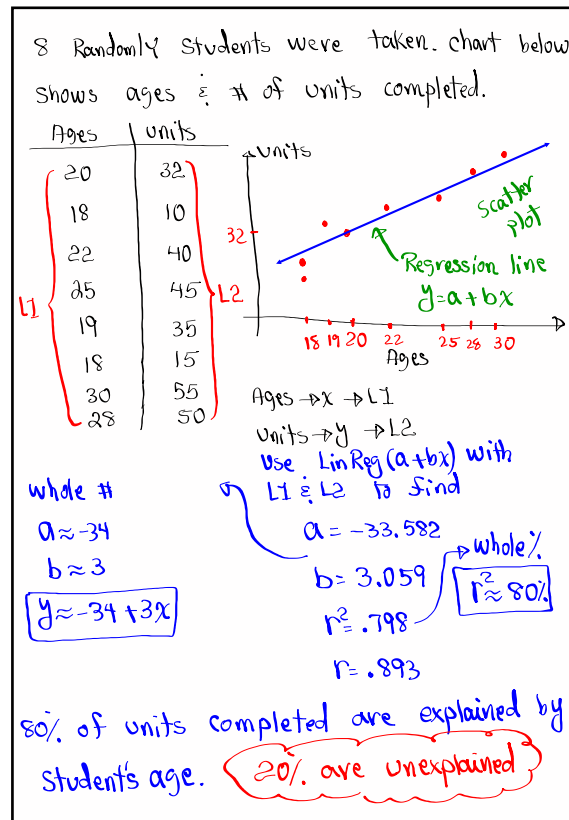 8 Randomly students were taken. chart below
shows ages & # of units completed.
Ages | units
20 32
18 10
22 40
25 45
19 35
18 15
30 55
28 50
L1
L2
units
32
Scatter
plot
Regression line
y=a+bx
18 19 20 22 25 28 30
Ages
Ages → x → L1
units → y → L2
use LinReg(a+bx) with
L1 & L2 to find
a = -33.582
b = 3.059
r² = .798
r = .893
whole %
r² ≈ 80%
whole #
a ≈ -34
b ≈ 3
y ≈ -34 + 3x
80% of units completed are explained by
student's age. 20% are unexplained